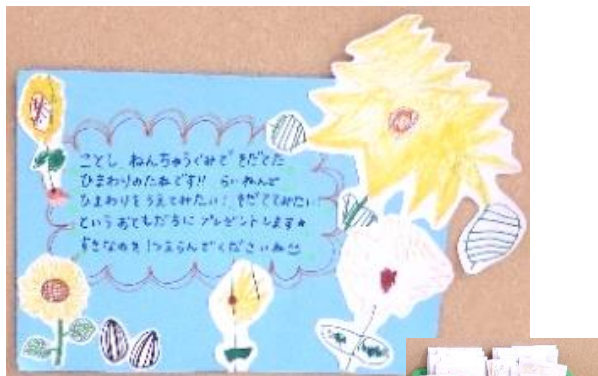 ことし ねんちゅうぐみで そだてた
ひまわりのたねです!! らいねんど
ひまわりをうえてみたい! そだててみたい
というおともだちに プレゼントします★
すきなのを 1つえらんでくださいね☺